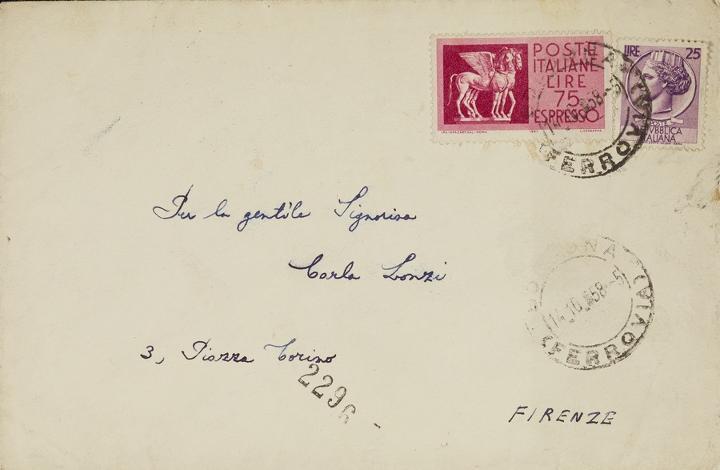 POSTE
ITALIANE
LIRE
75
ESPRESSO
LIRE 25
POSTE
REPUBBLICA
ITALIANA
(FERROVIA)
Per la gentile Signorina
Carla Lonzi
14.10.58-5
(FERROVIA)
3, Piazza Torino
2296
FIRENZE